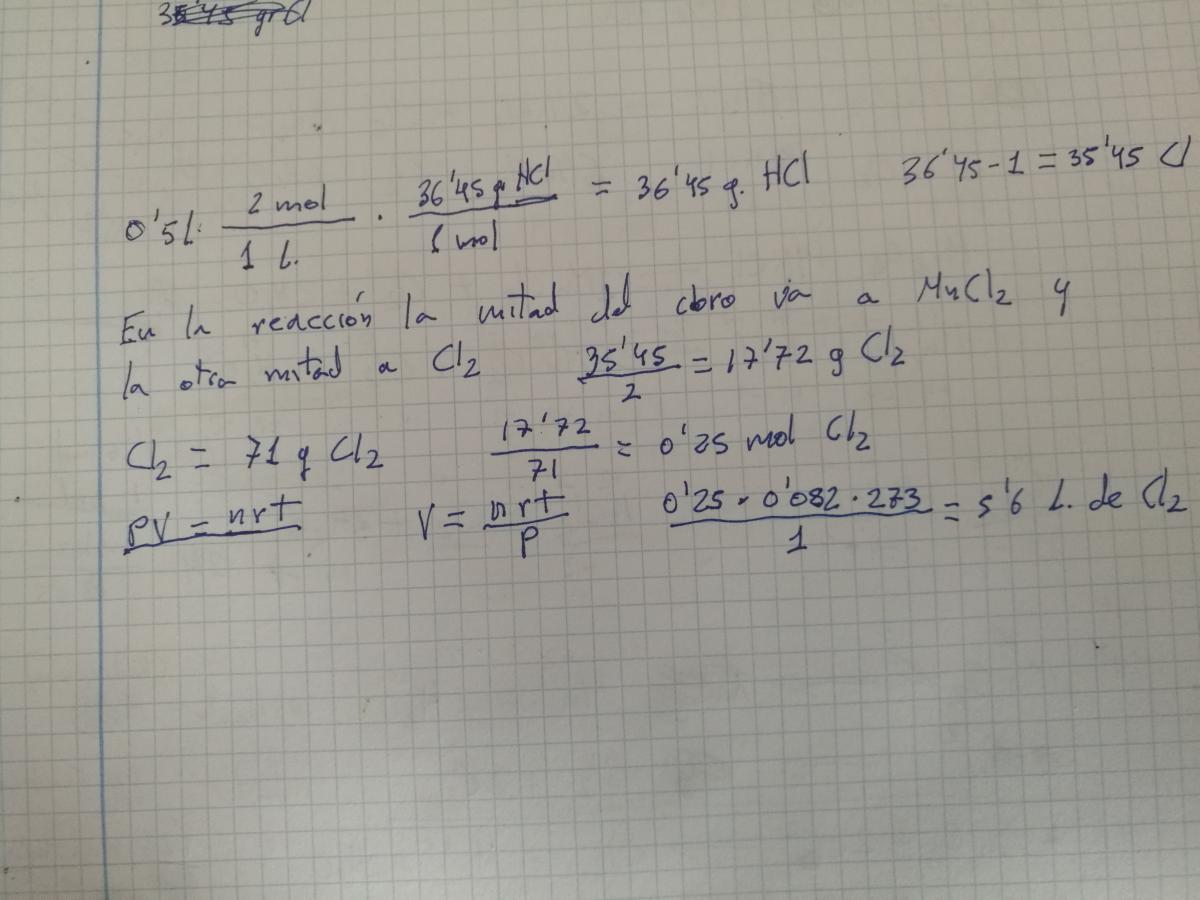 35'45 gr Cl
0'5 L · 2 mol / 1 L. · 36'45 g. HCl / 1 mol = 36'45 g. HCl 36'45 - 1 = 35'45 Cl
En la reacción la mitad del cloro va a MnCl2 y
la otra mitad a Cl2 35'45 / 2 = 17'72 g Cl2
Cl2 = 71 g Cl2 17'72 / 71 = 0'25 mol Cl2
PV = nrt V = nrt / P 0'25 · 0'082 · 273 / 1 = 5'6 L. de Cl2